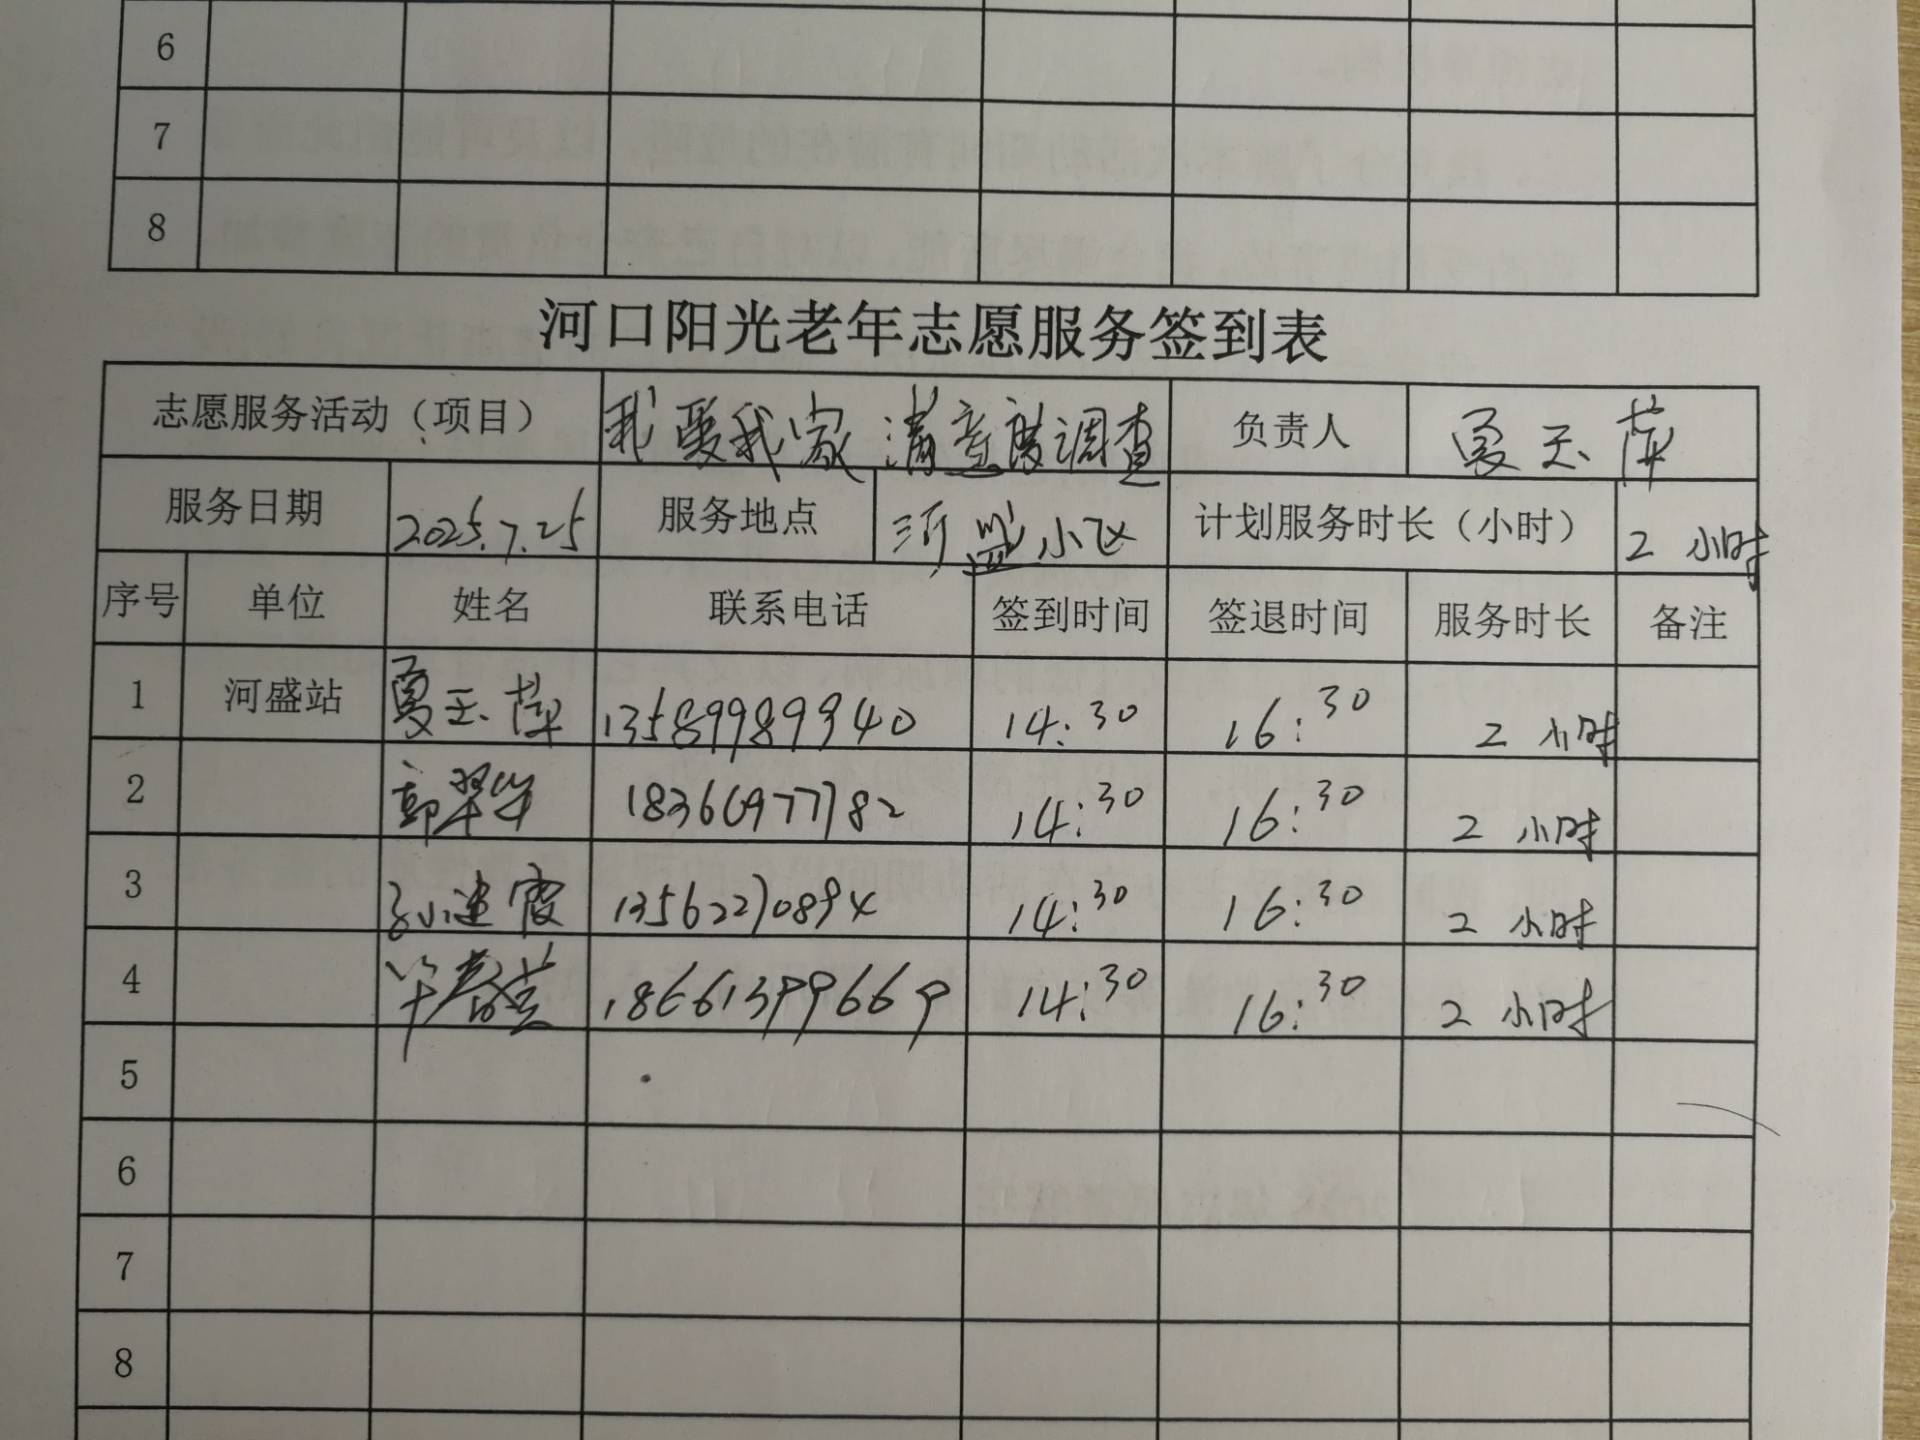 6
7
8
河口阳光老年志愿服务签到表
志愿服务活动（项目） 我要我家 满意度调查 负责人 夏玉萍
服务日期 2025.7.25 服务地点 河盛小区 计划服务时长（小时） 2 小时
序号 单位 姓名 联系电话 签到时间 签退时间 服务时长 备注
1 河盛站 夏玉萍 13589989940 14:30 16:30 2 小时
2 郭翠华 14:30 16:30 2 小时
3 孙建霞 13562270894 14:30 16:30 2 小时
4 18661399669 14:30 16:30 2 小时
5
6
7
8